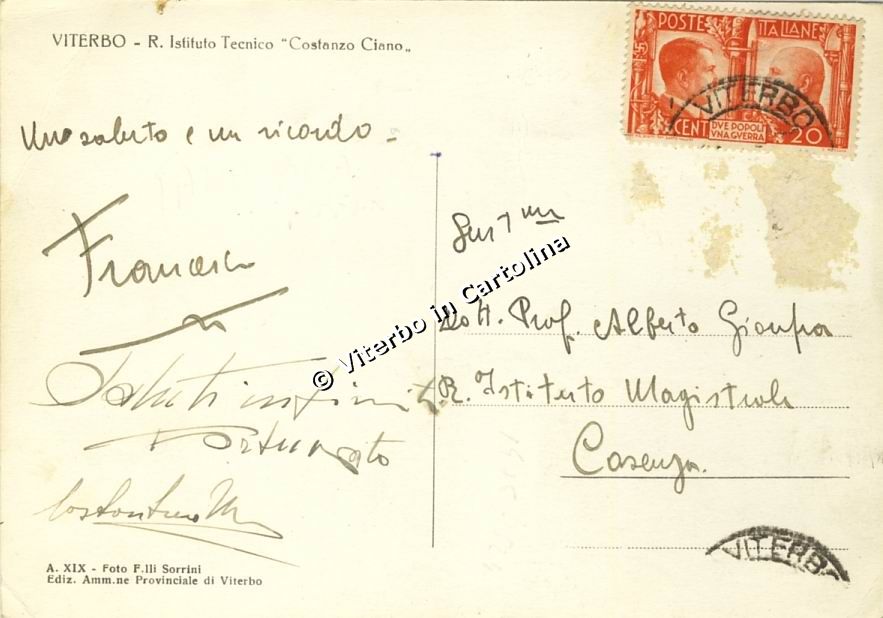 VITERBO - R. Istituto Tecnico "Costanzo Ciano„
POSTE ITALIANE
CENT DVE POPOLI VNA GVERRA 20
VITERBO
Un saluto e un ricordo -
Francesco
Saluti infiniti
Fortunato
Costantino M
© Viterbo in Cartolina
Dott. Prof. Alberto
R. Istituto Magistrale
Cosenza.
VITERBO
A. XIX - Foto F.lli Sorrini
Ediz. Amm.ne Provinciale di Viterbo